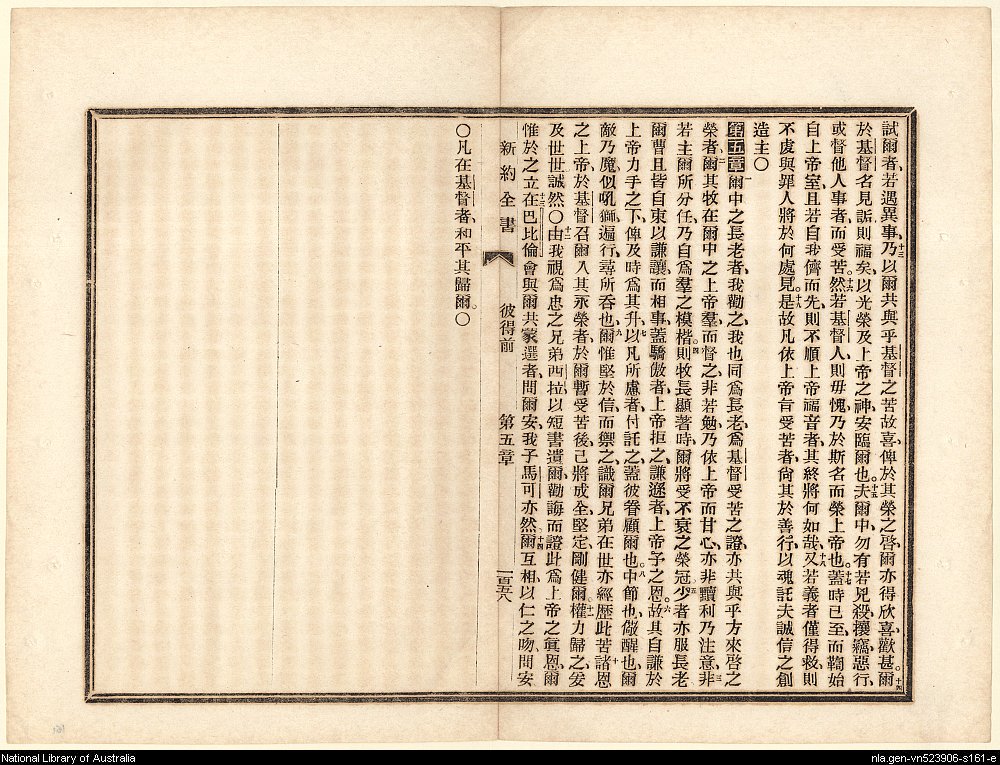 試爾者、若遇異事、十三乃以爾共與乎基督之苦故喜、俾於其榮之啓、爾亦得欣喜歡甚。十四爾
於基督名見詬則福矣、以光榮及上帝之神、安臨爾也。十五夫爾中、勿有若兇殺、攘竊、惡行、
或督他人事者、而受苦。十六然若基督人、則毋愧、乃於斯名而榮上帝也。十七蓋時已至、而鞫始
自上帝室、且若自我儕而先、則不順上帝福音者、其終將何如哉。十八又若義者僅得救、則
不虔與罪人將於何處見。十九是故凡依上帝旨受苦者、尙其於善行、以魂託夫誠信之創
造主〇
第五章 一爾中之長老者、我勸之、我也同爲長老、爲基督受苦之證、亦共與乎方來啓之
榮者、二爾其牧在爾中之上帝羣而督之、非若勉、乃依上帝而甘心、亦非黷利、乃注意、三非
若主爾所分任、乃自爲羣之模楷。四則牧長顯著時、爾將受不衰之榮冠。五少者亦服長老、
爾曹且皆自束以謙讓、而相事、蓋驕傲者、上帝拒之、謙遜者、上帝予之恩。六故其自謙於
上帝力手之下、俾及時爲其升、七以凡所慮者、付託之、蓋彼眷顧爾也。八中節也、儆醒也、爾
敵乃魔、似吼獅、遍行、尋所吞也、九爾惟堅於信而禦之、識爾兄弟在世、亦經歷此苦、十諸恩
之上帝、於基督召爾入其永榮者、於爾暫受苦後、已將成全、堅定、剛健爾。十一權力歸之、爰
及世世、誠然〇十二由我視爲忠之兄弟西拉、以短書遺爾、勸誨而證此爲上帝之眞恩、爾
惟於之立、十三在巴比倫會、與爾共蒙選者、問爾安、我子馬可亦然、十四爾互相以仁之吻、問安
〇凡在基督者、和平其歸爾。〇
新約全書 彼得前 第五章 一百五八
National Library of Australia
nla.gen-vn523906-s161-e